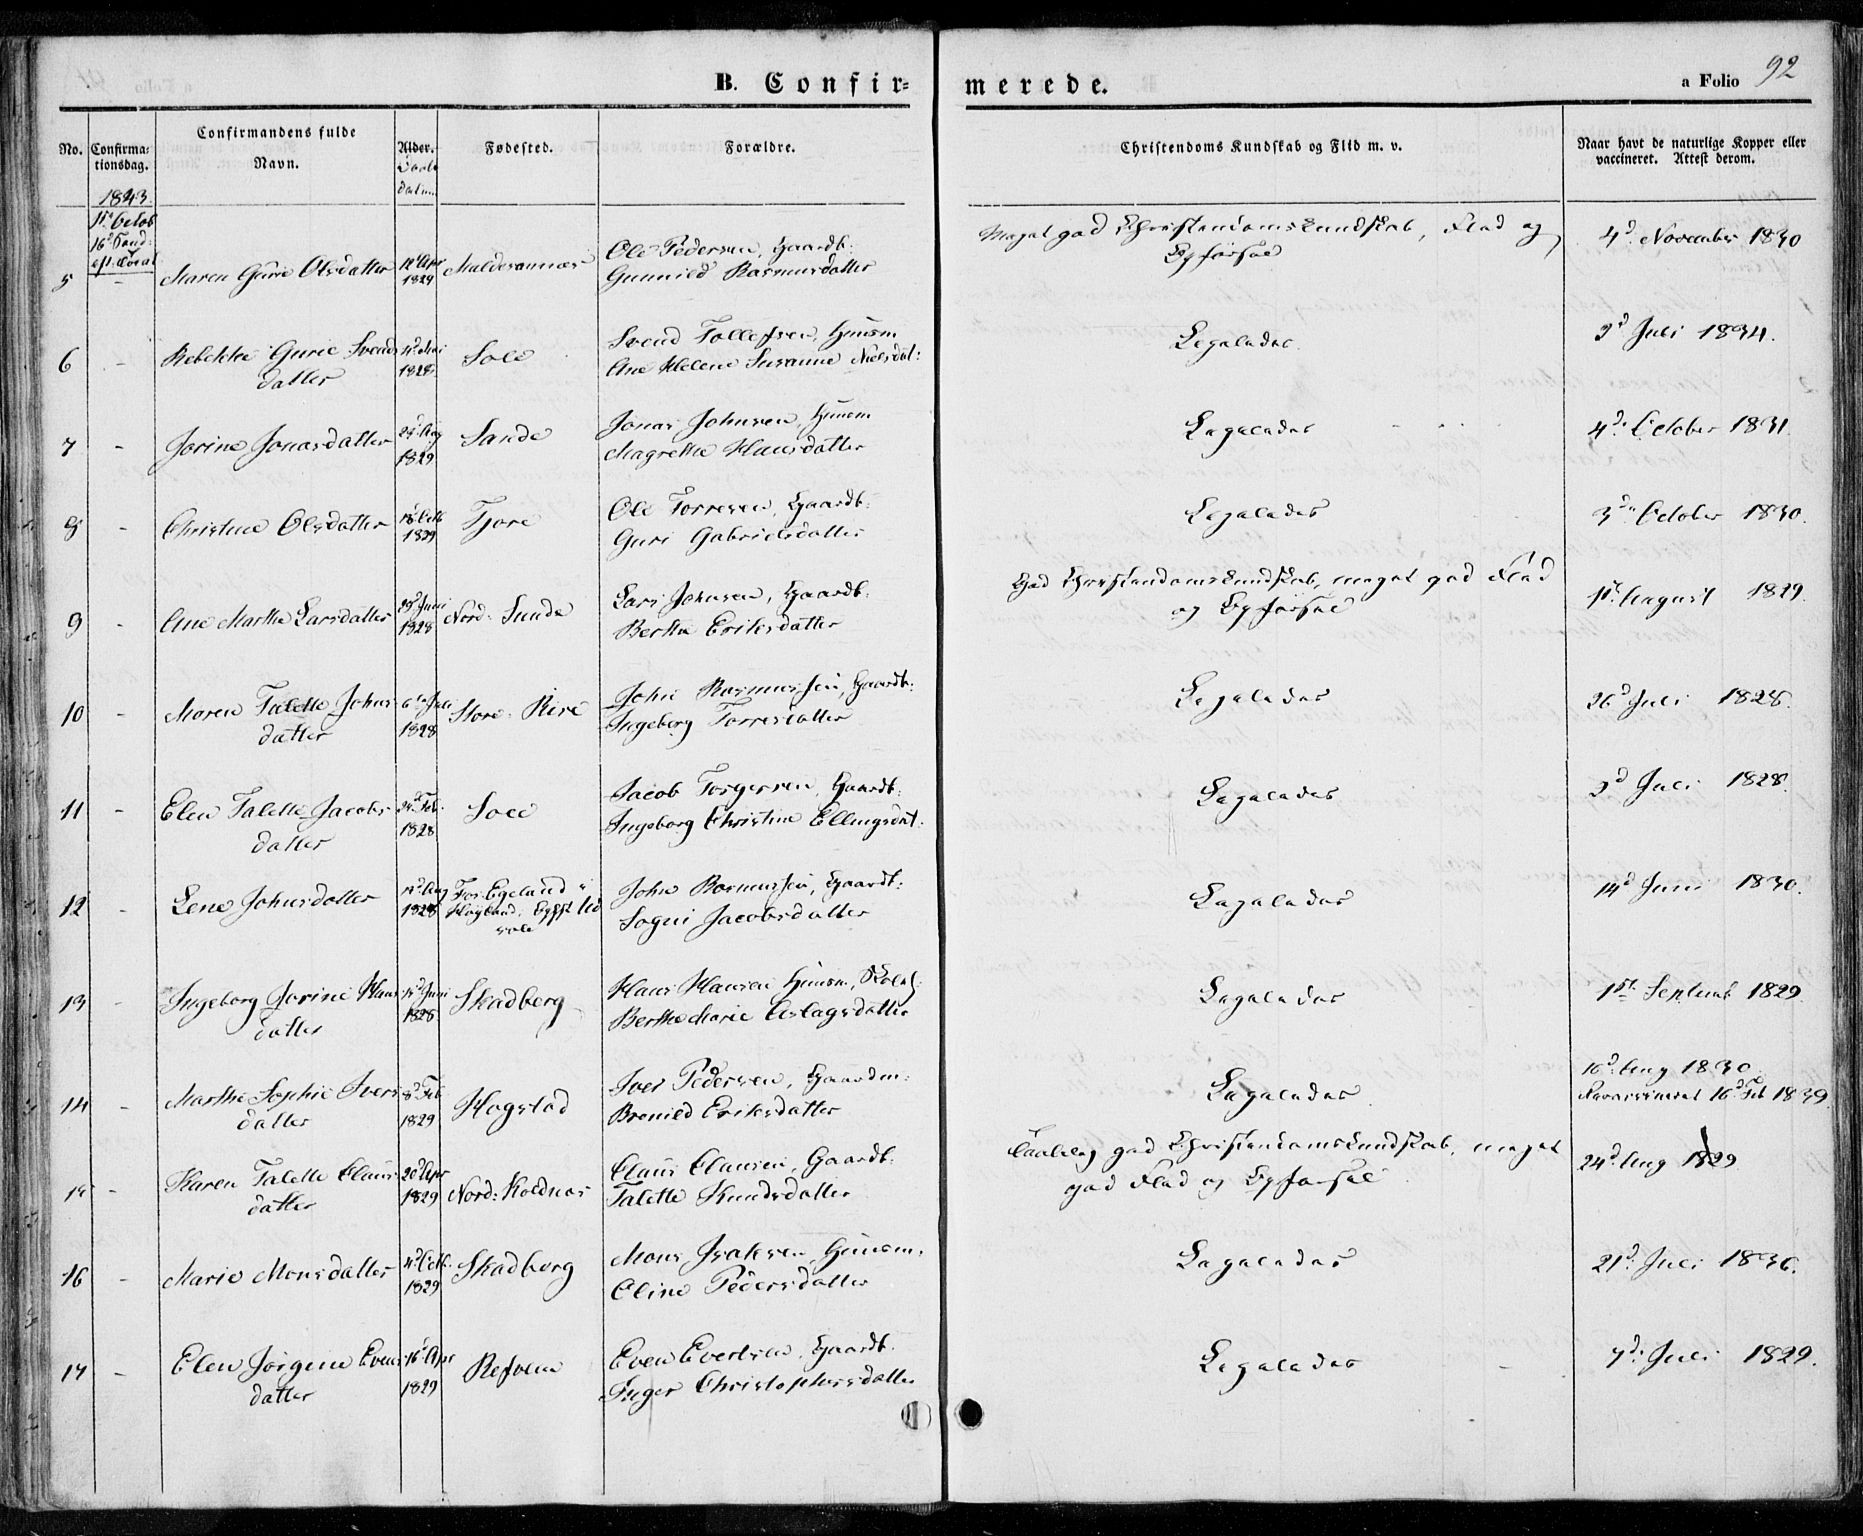 B. Confir=
merede.
a Folio 92
No.
Confirma=
tionsdag.
Confirmandens fulde
Navn.
Alder.
Daabs
Datum.
Fødested.
Forældre.
Christendoms Kundskab og Flid m. v.
Naar havt de naturlige Kopper eller
vaccineret. Attest derom.
1843
1st Octob
16d Sond:
eft. Trinit
5 - Maren Gurie Olsdatter 12t Apr 1829 Maldesonnæs
Ole Pedersen, Gaardb:
Gunnild Rasmusdatter
Meget god Christendomskundskab, Flid og
Opførsel
4d November 1830
6 - Rebekka Gurie Svends
datter
4d Mai
1828
Sole
Svend Tollefsen, Huusm
Ane Helene Susanne Nielsdat:
Ligeledes
3d Juli 1834.
7 - Jorine Jonasdatter
24d Aug
1829
Sande
Jonas Johnsen, Huusm
Magretha Hansdatter
Ligeledes
4d October 1831
8 - Christine Olsdatter
18d Octb
1829
Tjore
Ole Torresen, Gaardb:
Guri Gabrielsdatter
Ligeledes
3d October 1830.
9 - Ane Martha Larsdatter
29d Juni
1828
Nord: Sunde
Lars Johnsen, Gaardb.
Bertha Eriksdatter
God Christendomskundskab, meget god Flid
og Opførsel
1st August 1829.
10 - Maren Talette Johns
datter
6te Juli
1828
Store Rire
John Rasmussen, Gaardb:
Ingeborg Torresdatter
Ligeledes
26d Juli 1828.
11 - Elen Talette Jacobs
datter
24d Feb.
1828
Sole
Jacob Torgersen, Gaardb:
Ingeborg Christine Ellingsdat:
Ligeledes
3d Juli 1828.
12 - Lene Johnsdatter
1828
Tor: Egeland i
Høyland, Opfst Ud
sole
John Rasmussen, Gaardb:
Sogni Jacobsdatter
Ligeledes
14d Juni 1830.
13 - Ingeborg Jorine Hans
datter
Juni
1828
Skadberg
Hans Hansen Huusm, Skolel:
Bertha Marie Aslagsdatter
Ligeledes
1st Septemb 1829
14 - Martha Sophie Ivers
datter
8d Feb
1829
Hogstad
Iver Pedersen, Gaardm:
Bronild Eriksdatter
Ligeledes
16d Aug 1830.
Revaccineret 16d Feb 1839.
15 - Karen Talette Claus
datter
20d Apr
1829
Nord: Koldnæs
Claus Clausen, Gaardb.
Talette Knudsdatter
Taalelig god Christendomskundskab, meget
god Flid og Opførsel
24d Aug 1829
16 - Marie Monsdatter
4d Octb.
1829
Skadberg
Mons Isaksen, Huusm.
Oline Pedersdatter
Ligeledes
21d Juli 1836.
17 - Elen Jørgine Evens
datter
16d Apr
1829
Refvem
Even Evertsen, Gaardb.
Inger Christophersdatter
Ligeledes
7d Juli 1829.